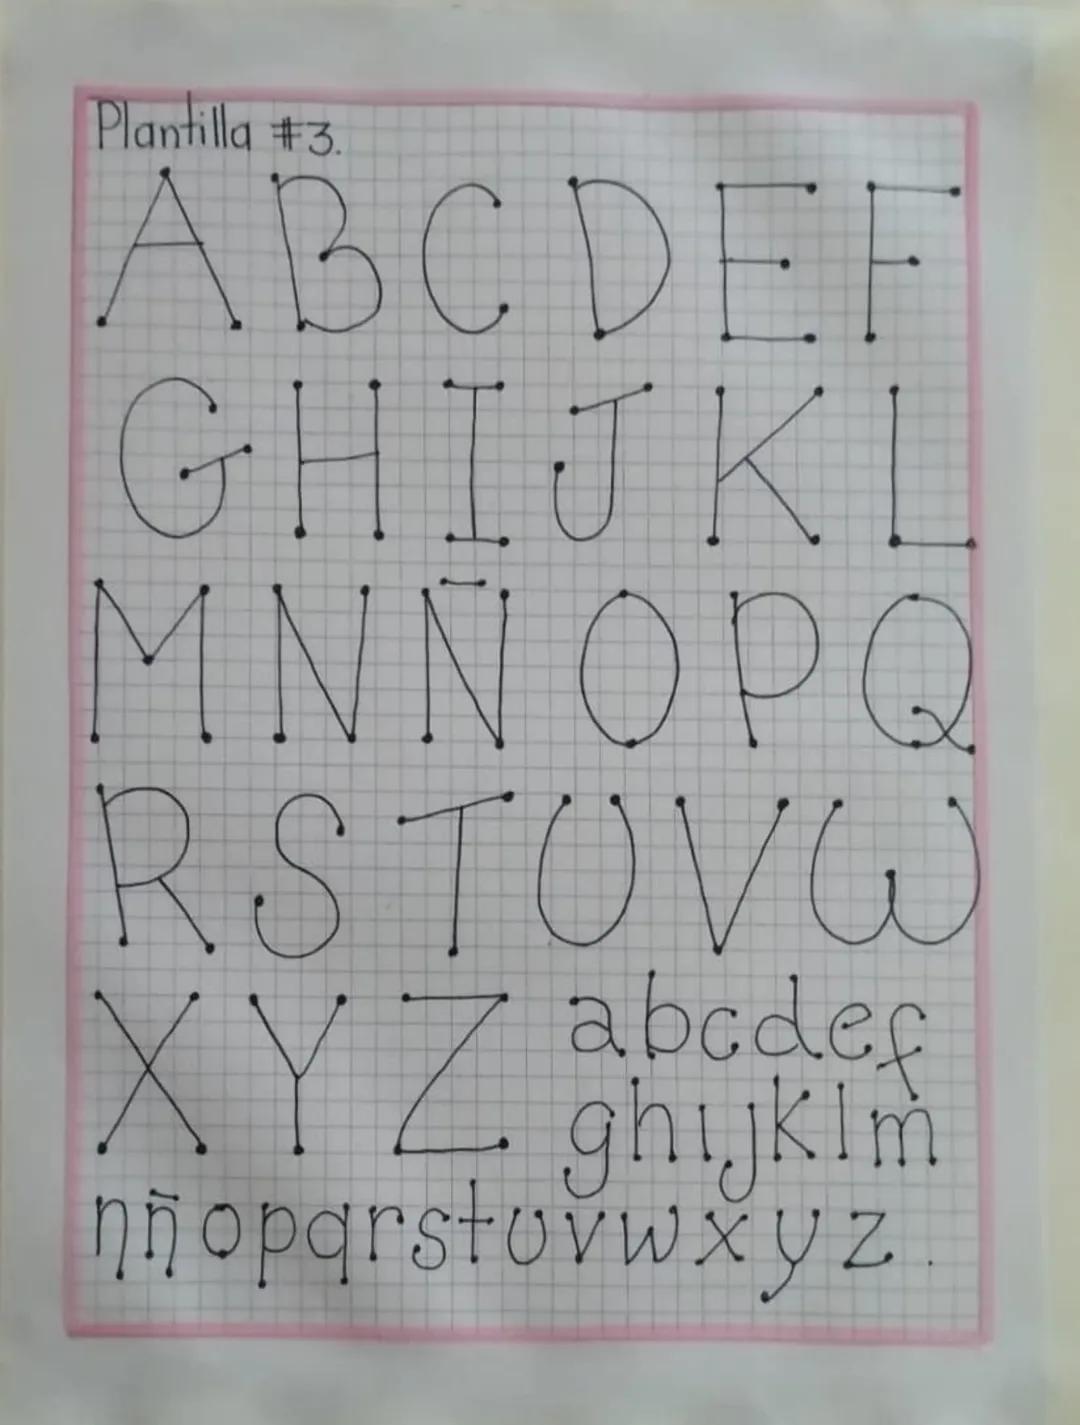 Plantilla #3.
A B C D E F
G H I J K L
M N Ñ O P Q
R S T U V W
X Y Z
a b c d e f
g h i j k l m
n ñ o p q r s t u v w x y z .